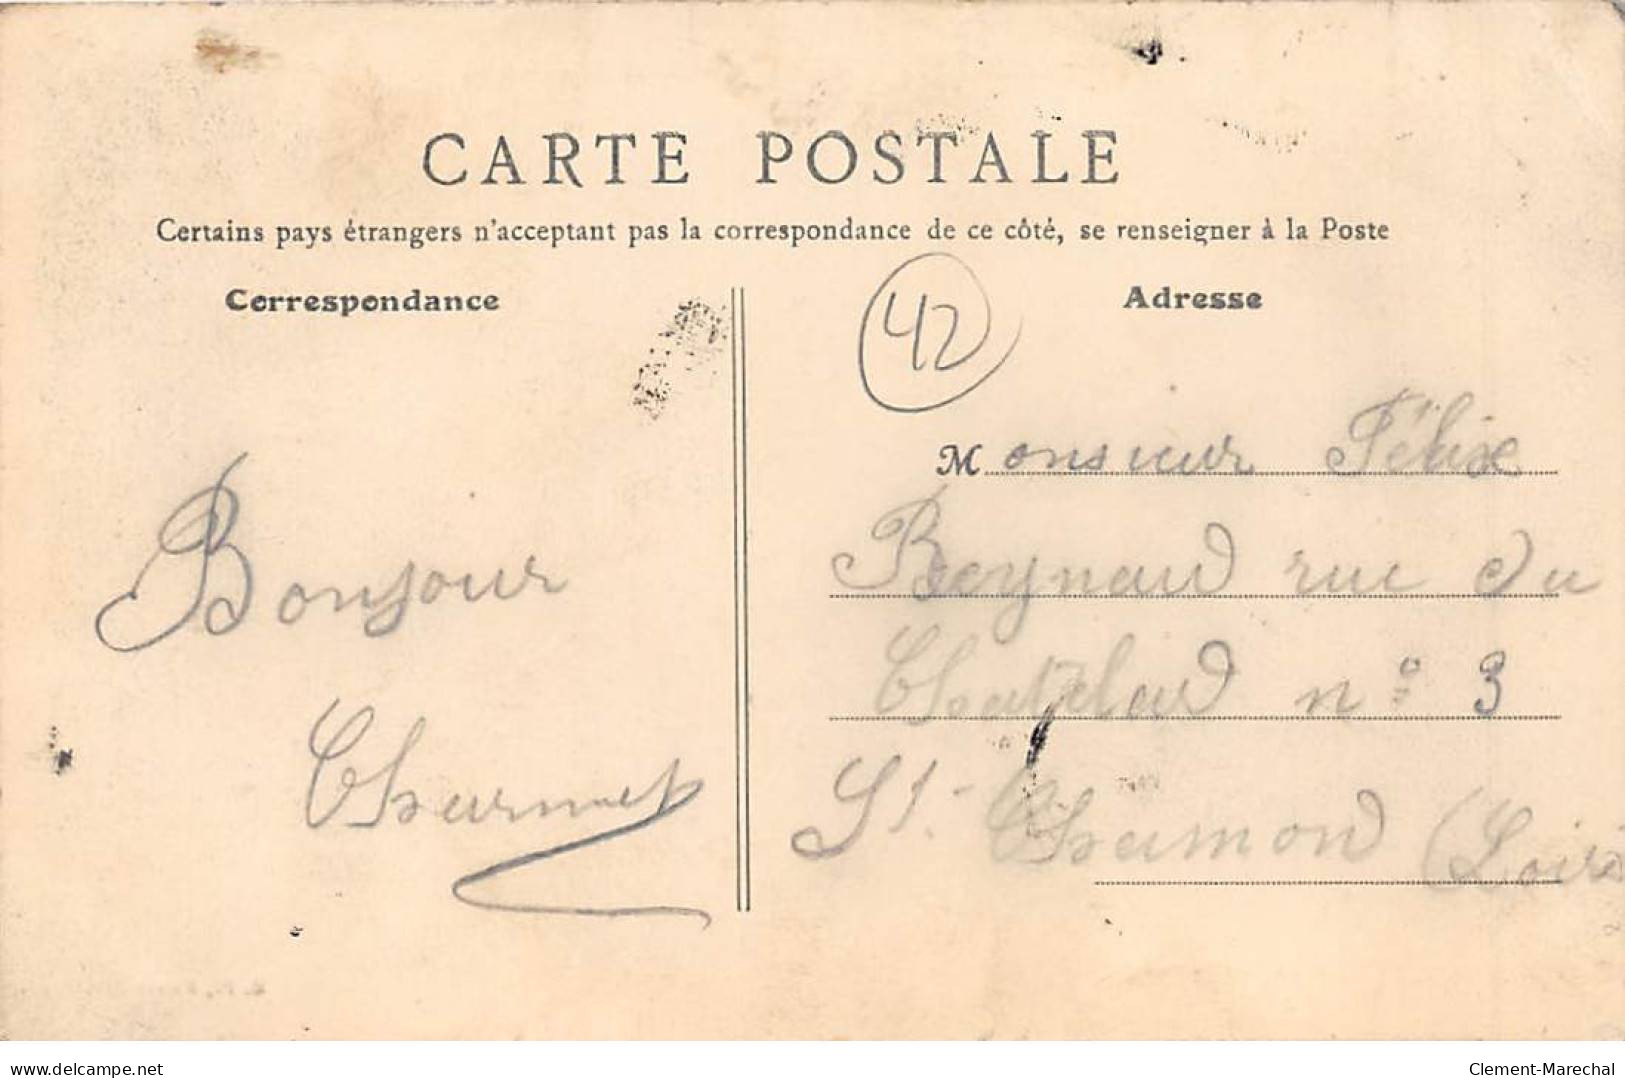 CARTE POSTALE
Certains pays étrangers n'acceptant pas la correspondance de ce côté, se renseigner à la Poste
Correspondance
Adresse
42
Monsieur Félix
Reynaud rue du
Chatelard n° 3
St-Chamond (Loire
Bonjour
Charmet
delcampe.net
Clement-Marechal